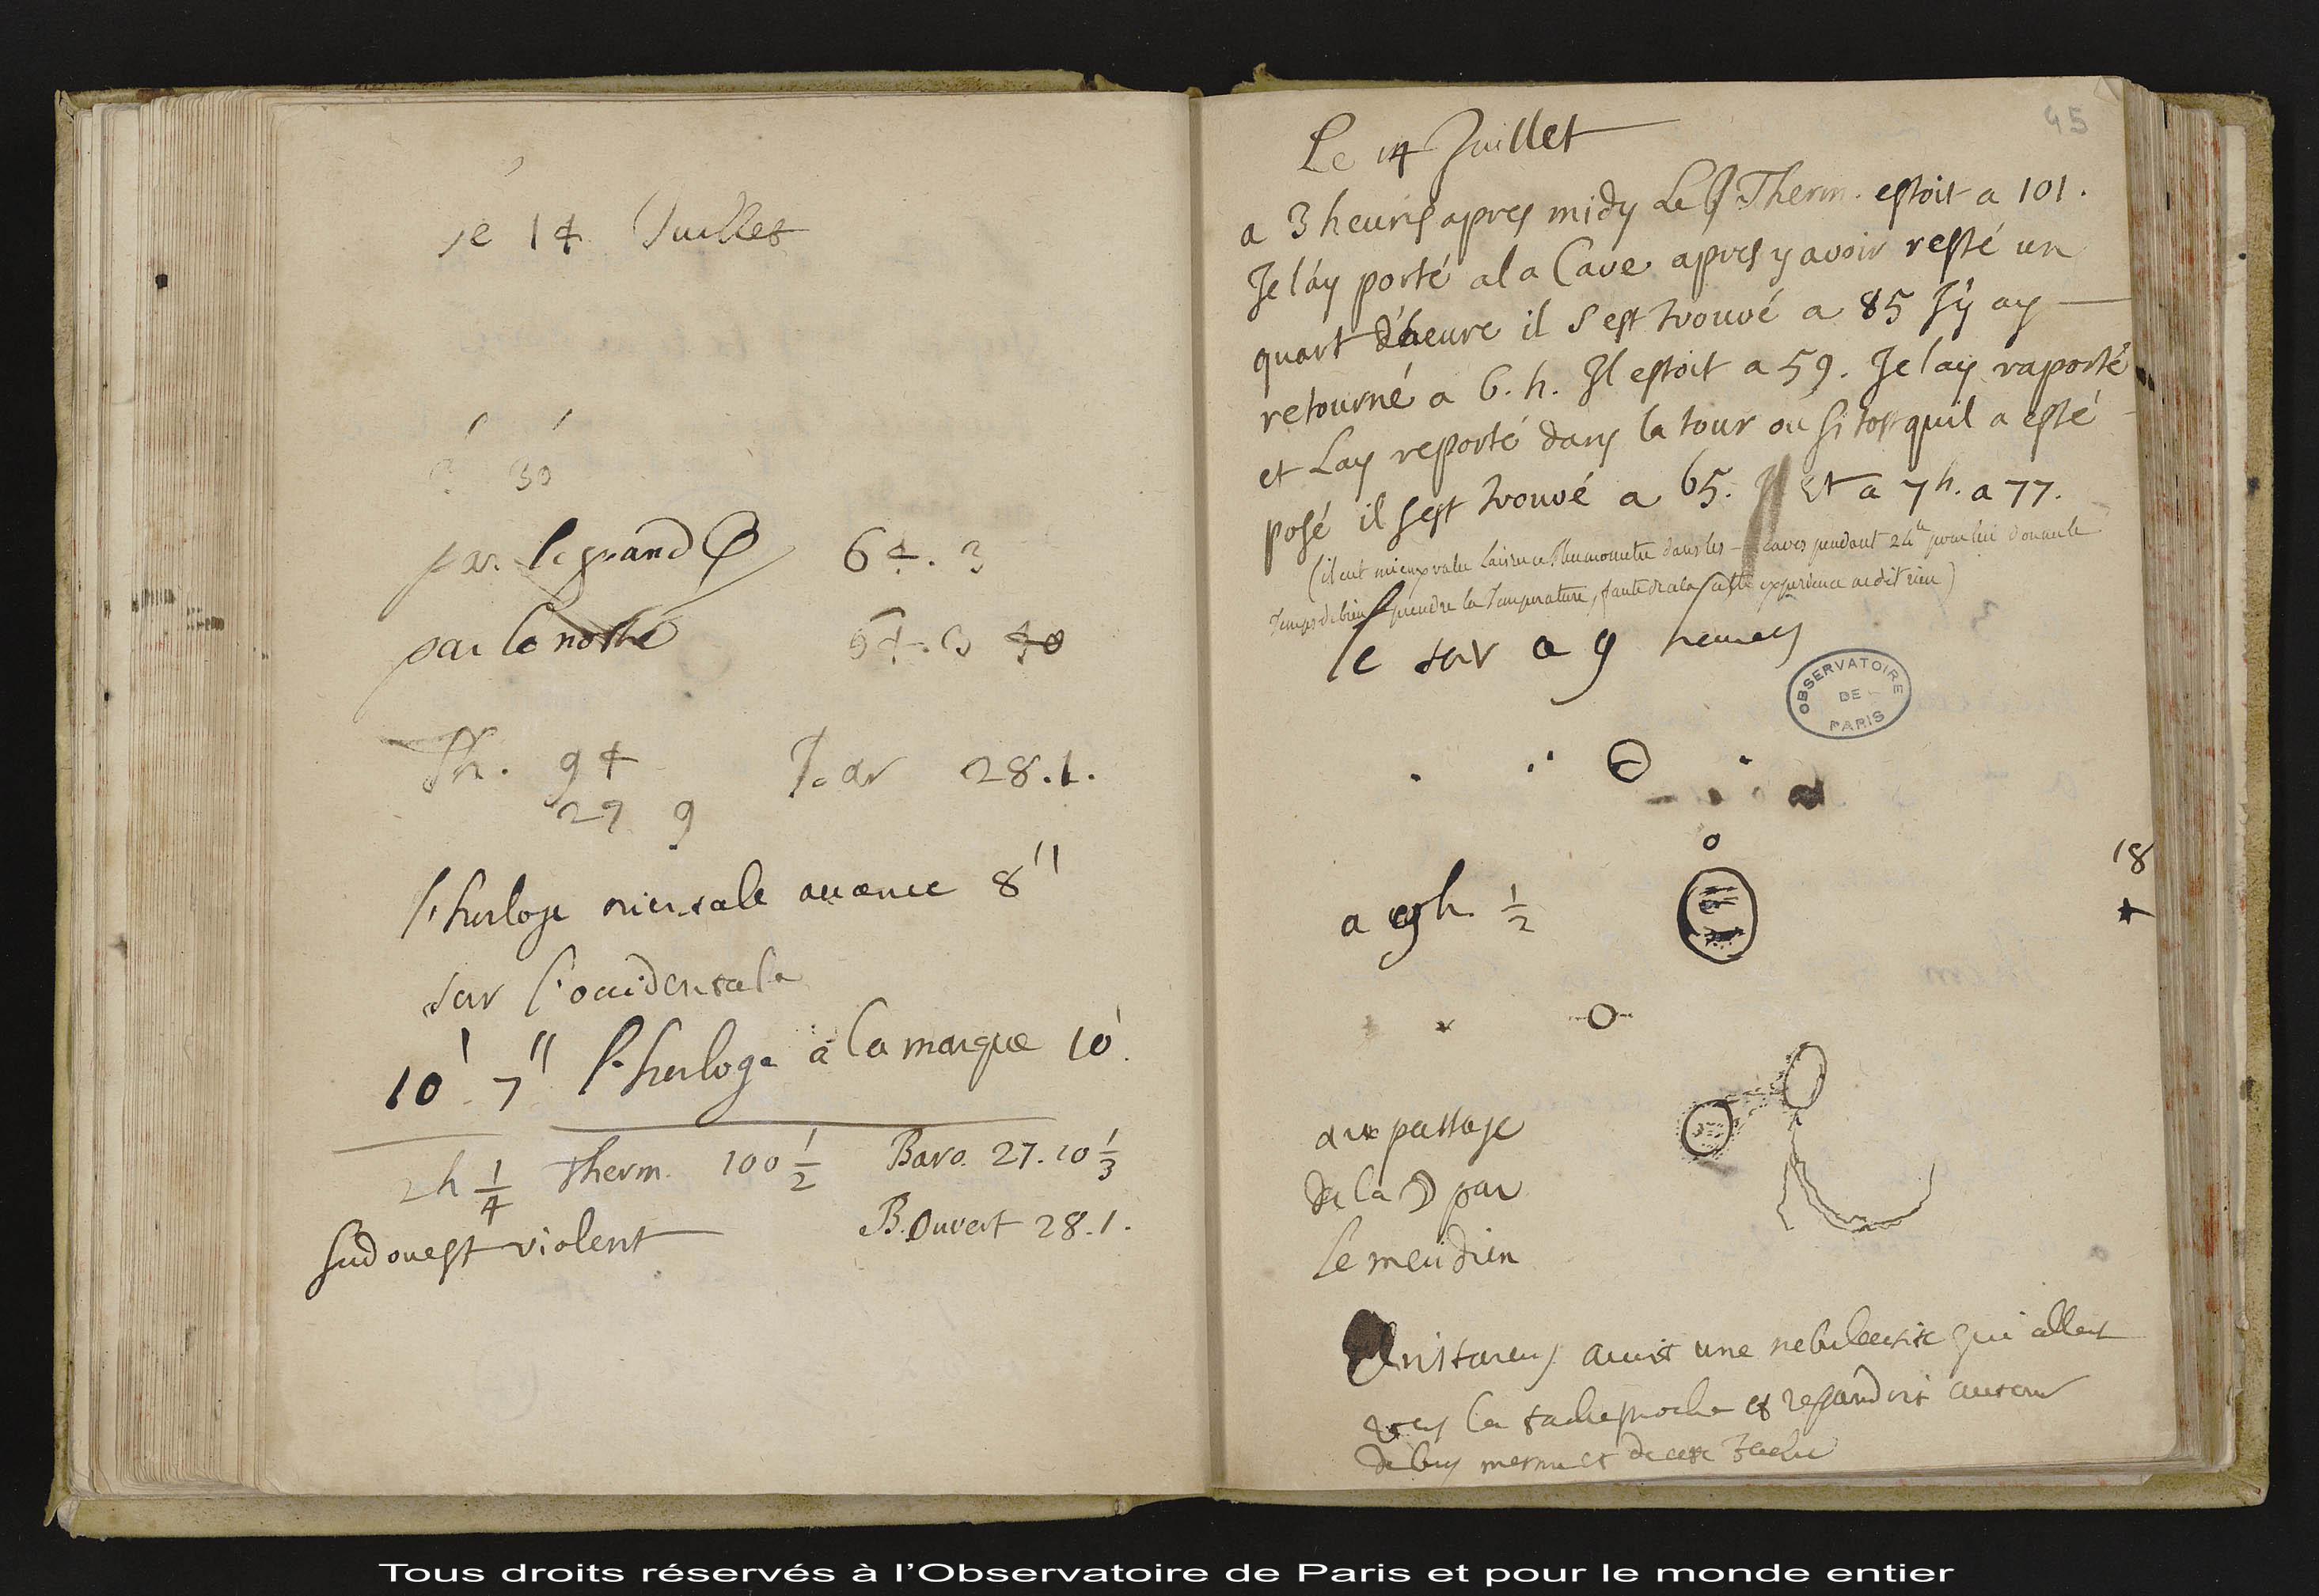 le 14 Juillet
30
par le grand 64. 3
par le nostre
Th. 94 Bar 28.1.
27 9
l'horloge orientale avance 8"
sur l'occidentale
10' 7" l'horloge à la marque 10'
2h 1/4 Therm. 100 1/2 Baro. 27.10 1/3
B. Ouvert 28.1.
Sud ouest violent
45
Le 14 Juillet
a 3 heures apres midy Le Therm. estoit a 101.
Je l'ay porté a la Cave apres y avoir resté un
quart d'heure il s'est trouvé a 85 J'y ay
retourné a 6. h. Il estoit a 59. Je l'ay raporté
et L'ay reporté dans la tour ou si tost qu'il a esté
posé il s'est trouvé a 65. Et a 7 h. a 77.
(il eut mieux valu laisser ce Thermometre dans les caves pendant 24h pour lui donner le
Temps de bien prendre la Temperature, faute de cela cette experience ne dit rien)
le soir a 9 heures
OBSERVATOIRE DE PARIS
18
a 9 h. 1/2
au passage
de la ☽ par
le meridien
Aristarcus avoit une nebulosité qui alloit
vers la tache proche et respandoit autour
de luy mesme et de cette tache
Tous droits réservés à l'Observatoire de Paris et pour le monde entier